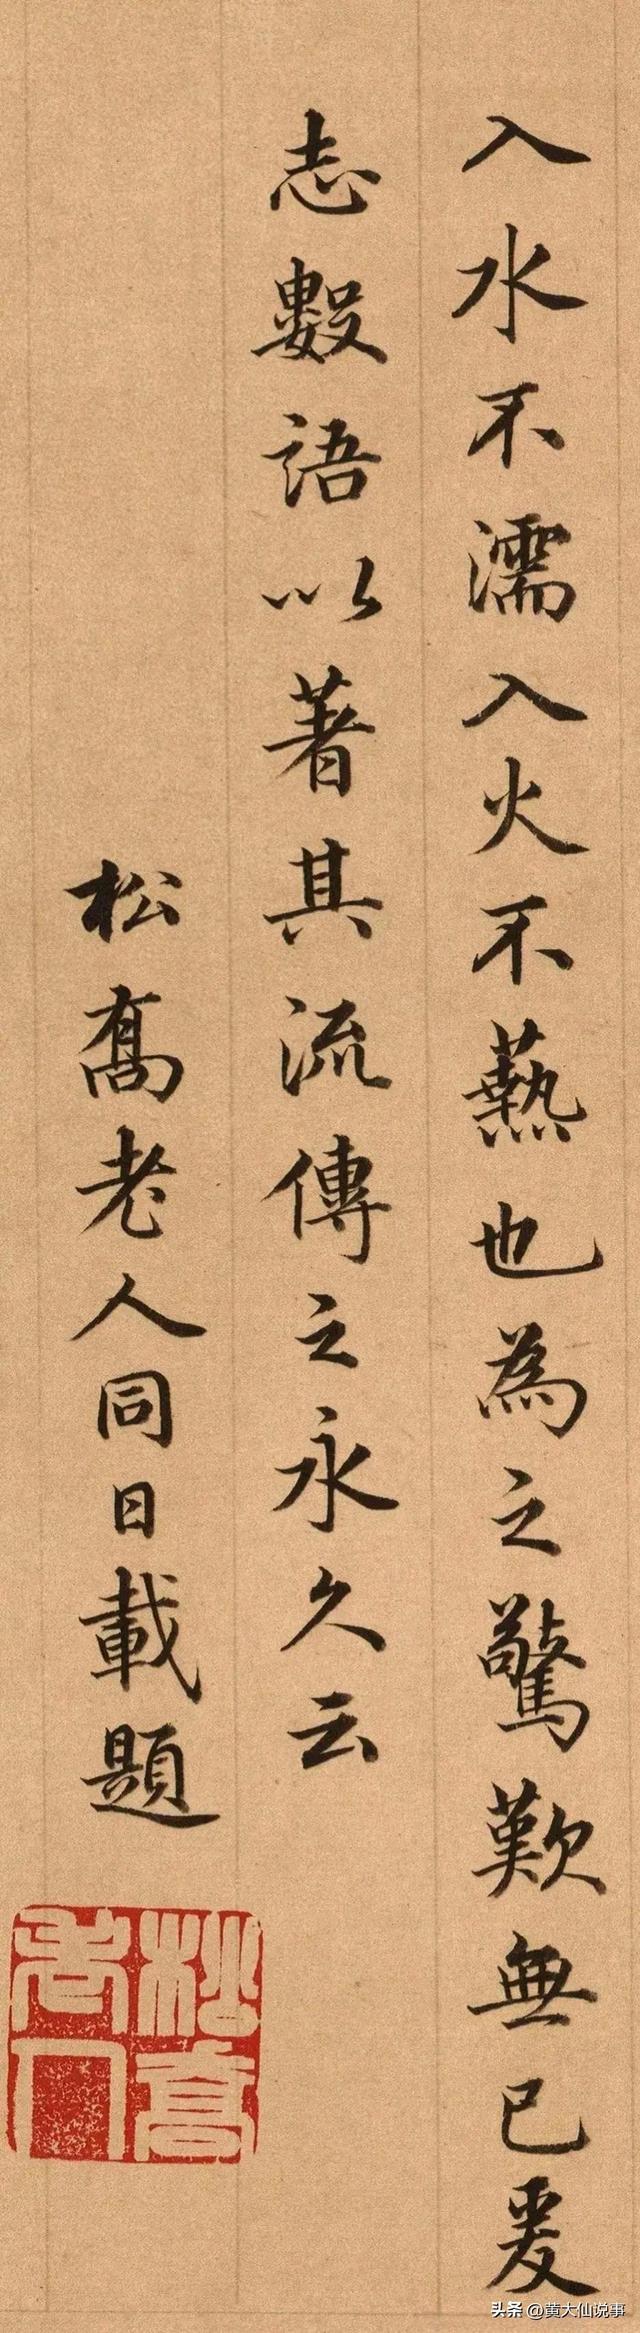 入水不濡入火不熱也為之驚歎無已爰
志數語以著其流傳之永久云
松喬老人同日載題
松喬老人
头条 @黄大仙说事